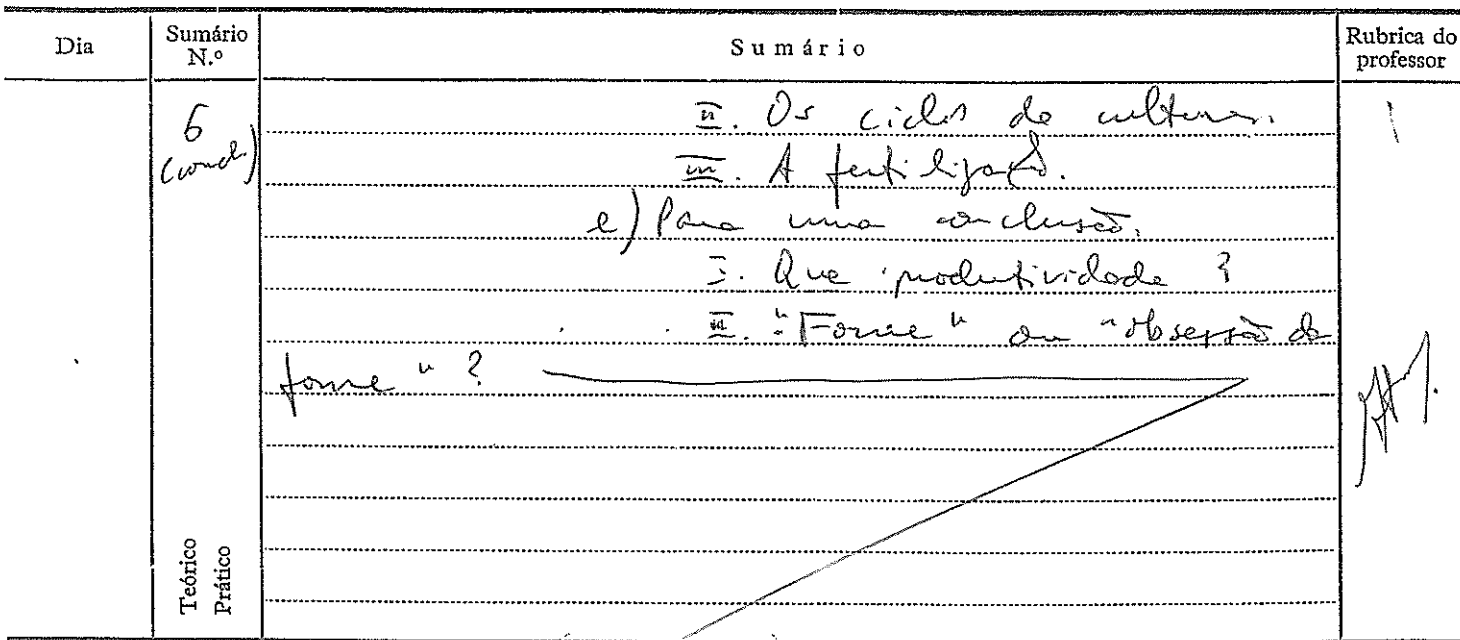 Dia
Sumário N.º
Sumário
Rubrica do professor
6 (concl.)
II. Os ciclos de culturas.
III. A fertilização.
e) Para uma conclusão.
I. Que produtividade?
II. "Fome" ou "obsessão da
fome"?
Teórico
Prático